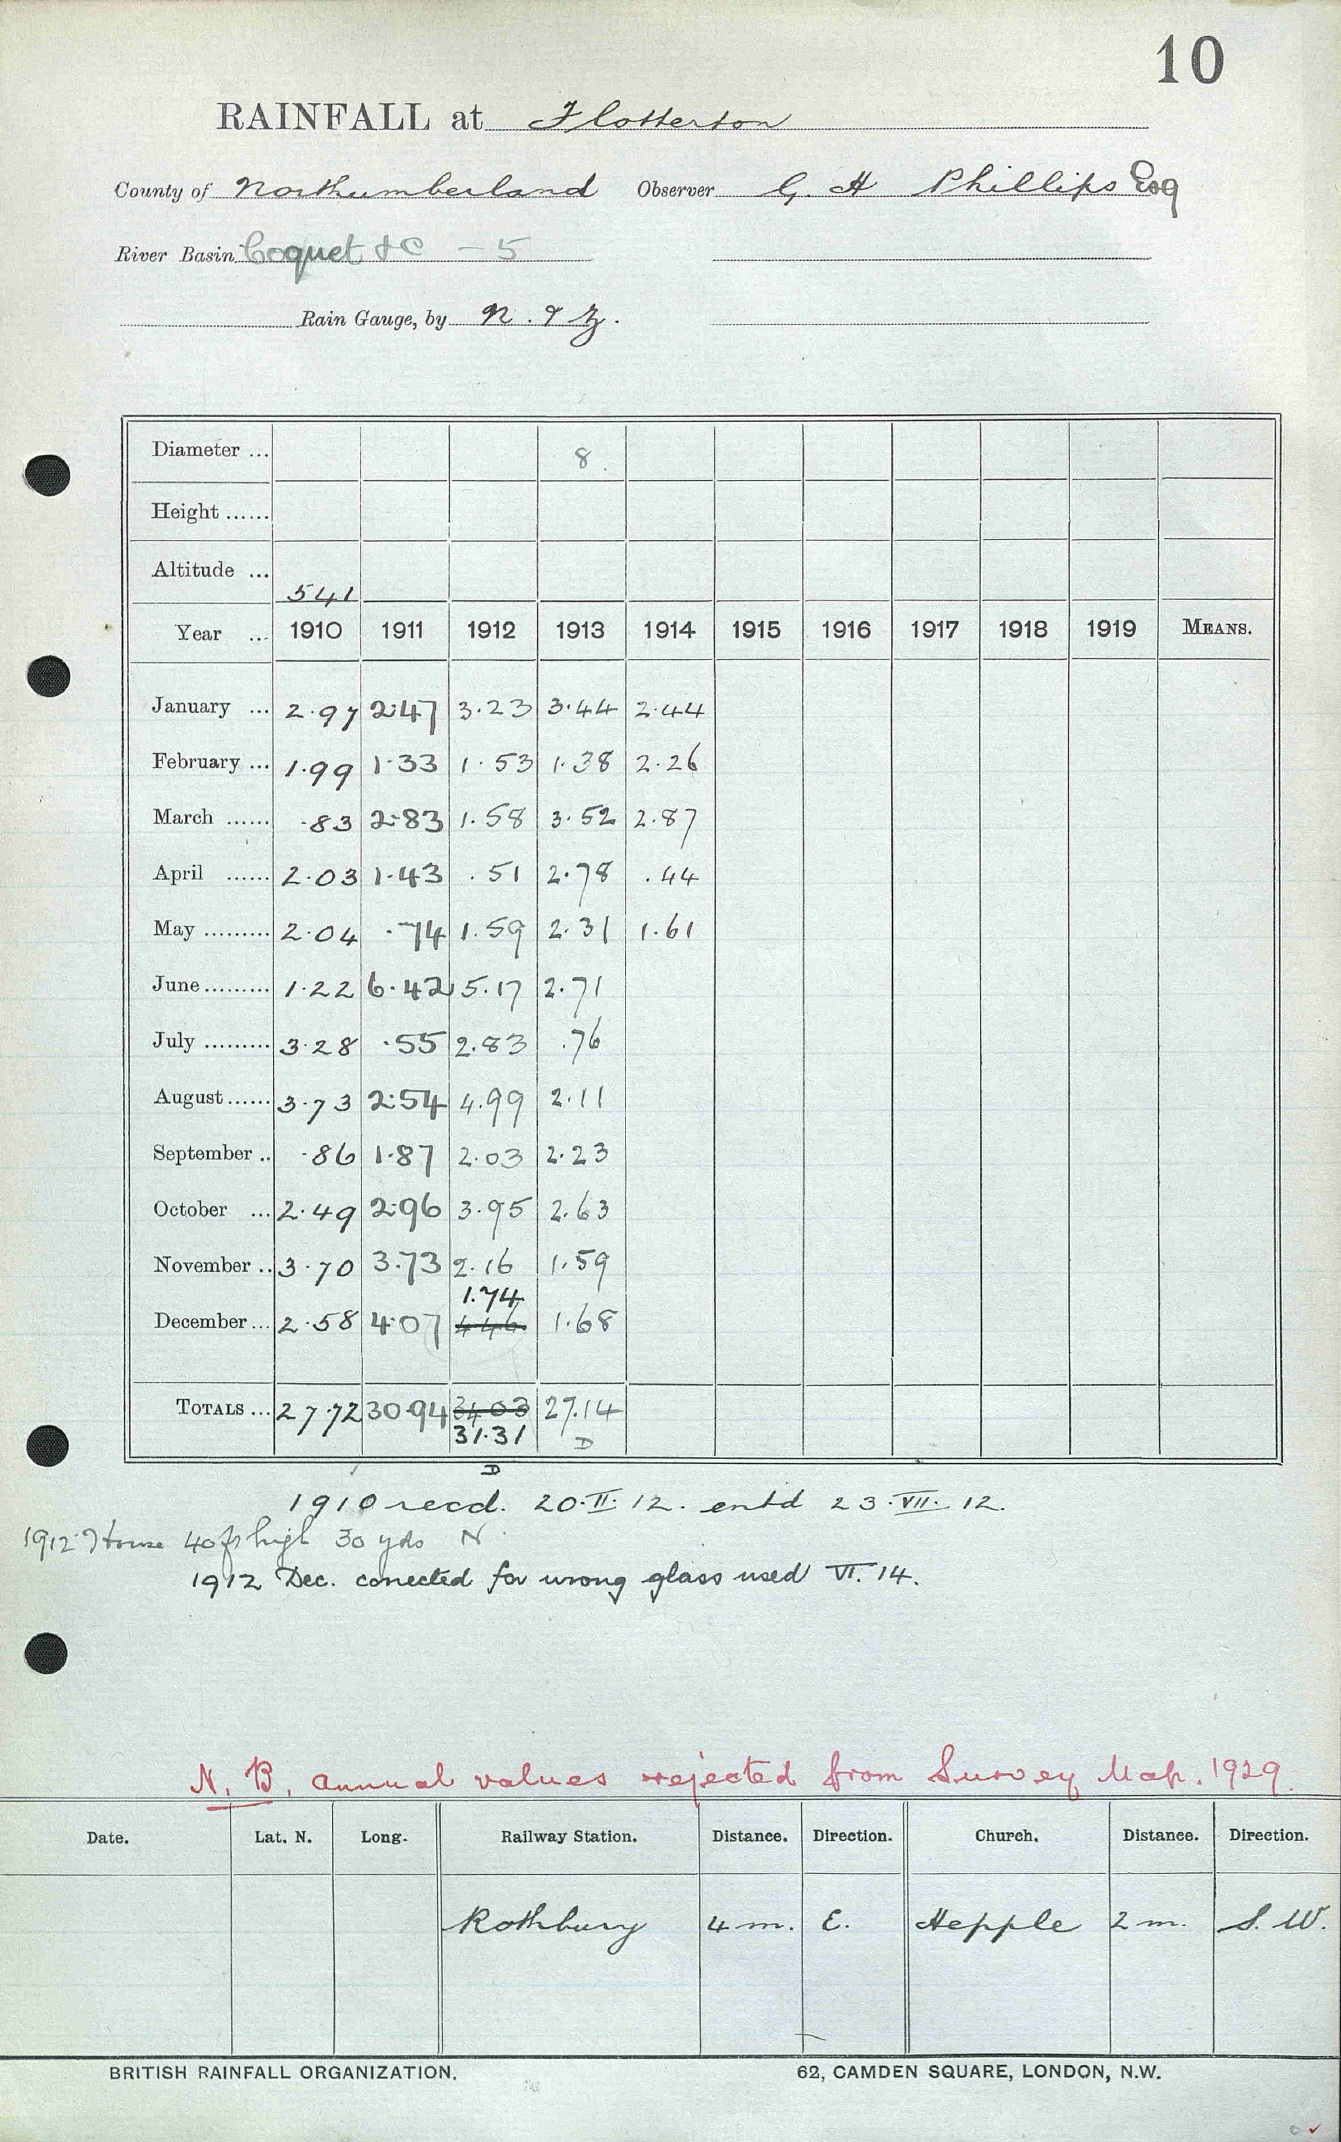 10
RAINFALL at Flotterton
County of Northumberland Observer G. H Phillips Esq
River Basin Coquet &c - 5
Rain Gauge, by N. & Z.
Diameter ... 8
Height ......
Altitude ... 541
Year ... 1910 1911 1912 1913 1914 1915 1916 1917 1918 1919 MEANS.
January ... 2.97 2.47 3.23 3.44 2.44
February ... 1.99 1.33 1.53 1.38 2.26
March ...... .83 2.83 1.58 3.52 2.87
April ...... 2.03 1.43 .51 2.78 .44
May ......... 2.04 .74 1.59 2.31 1.61
June ......... 1.22 6.42 5.17 2.71
July ......... 3.28 .55 2.83 .76
August ...... 3.73 2.54 4.99 2.11
September .. .86 1.87 2.03 2.23
October ... 2.49 2.96 3.95 2.63
November .. 3.70 3.73 2.16 1.59
1.74
December ... 2.58 4.07 4.46 1.68
TOTALS ... 27.72 30.94 34.03 27.14
31.31 D
D
1910 recd. 20.II.12. entd 23.VII.12.
1912 House 40ft high 30 yds N
1912 Dec. corrected for wrong glass used VI.14.
N.B. annual values rejected from Survey Map. 1929.
Date. Lat. N. Long. Railway Station. Distance. Direction. Church. Distance. Direction.
Rothbury 4 m. E. Hepple 2 m. S.W.
BRITISH RAINFALL ORGANIZATION. 62, CAMDEN SQUARE, LONDON, N.W.